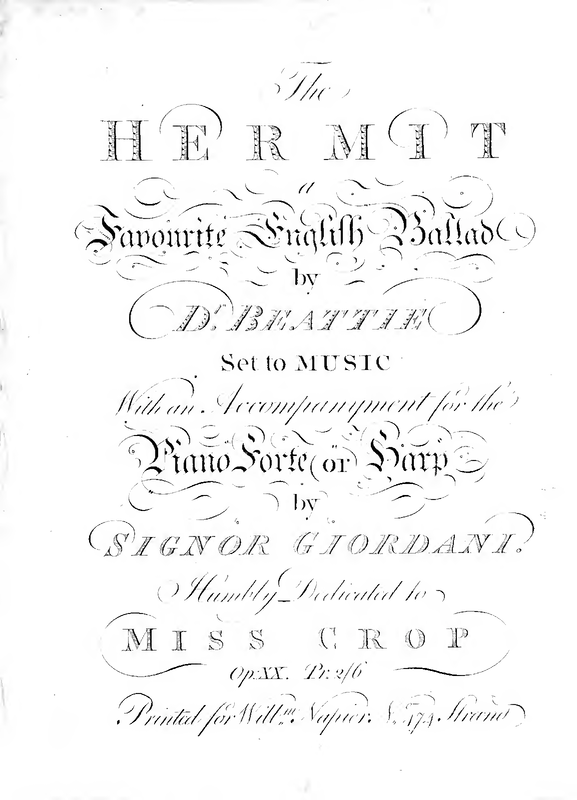 The
HERMIT
a
Favourite English Ballad
by
Dr. BEATTIE
Set to MUSIC
With an Accompanyment for the
Piano Forte (or Harp
by
SIGNOR GIORDANI.
Humbly Dedicated to
MISS CROP
Op: XX. Pr. 2/6
Printed for Willm. Napier. No. 474 Strand